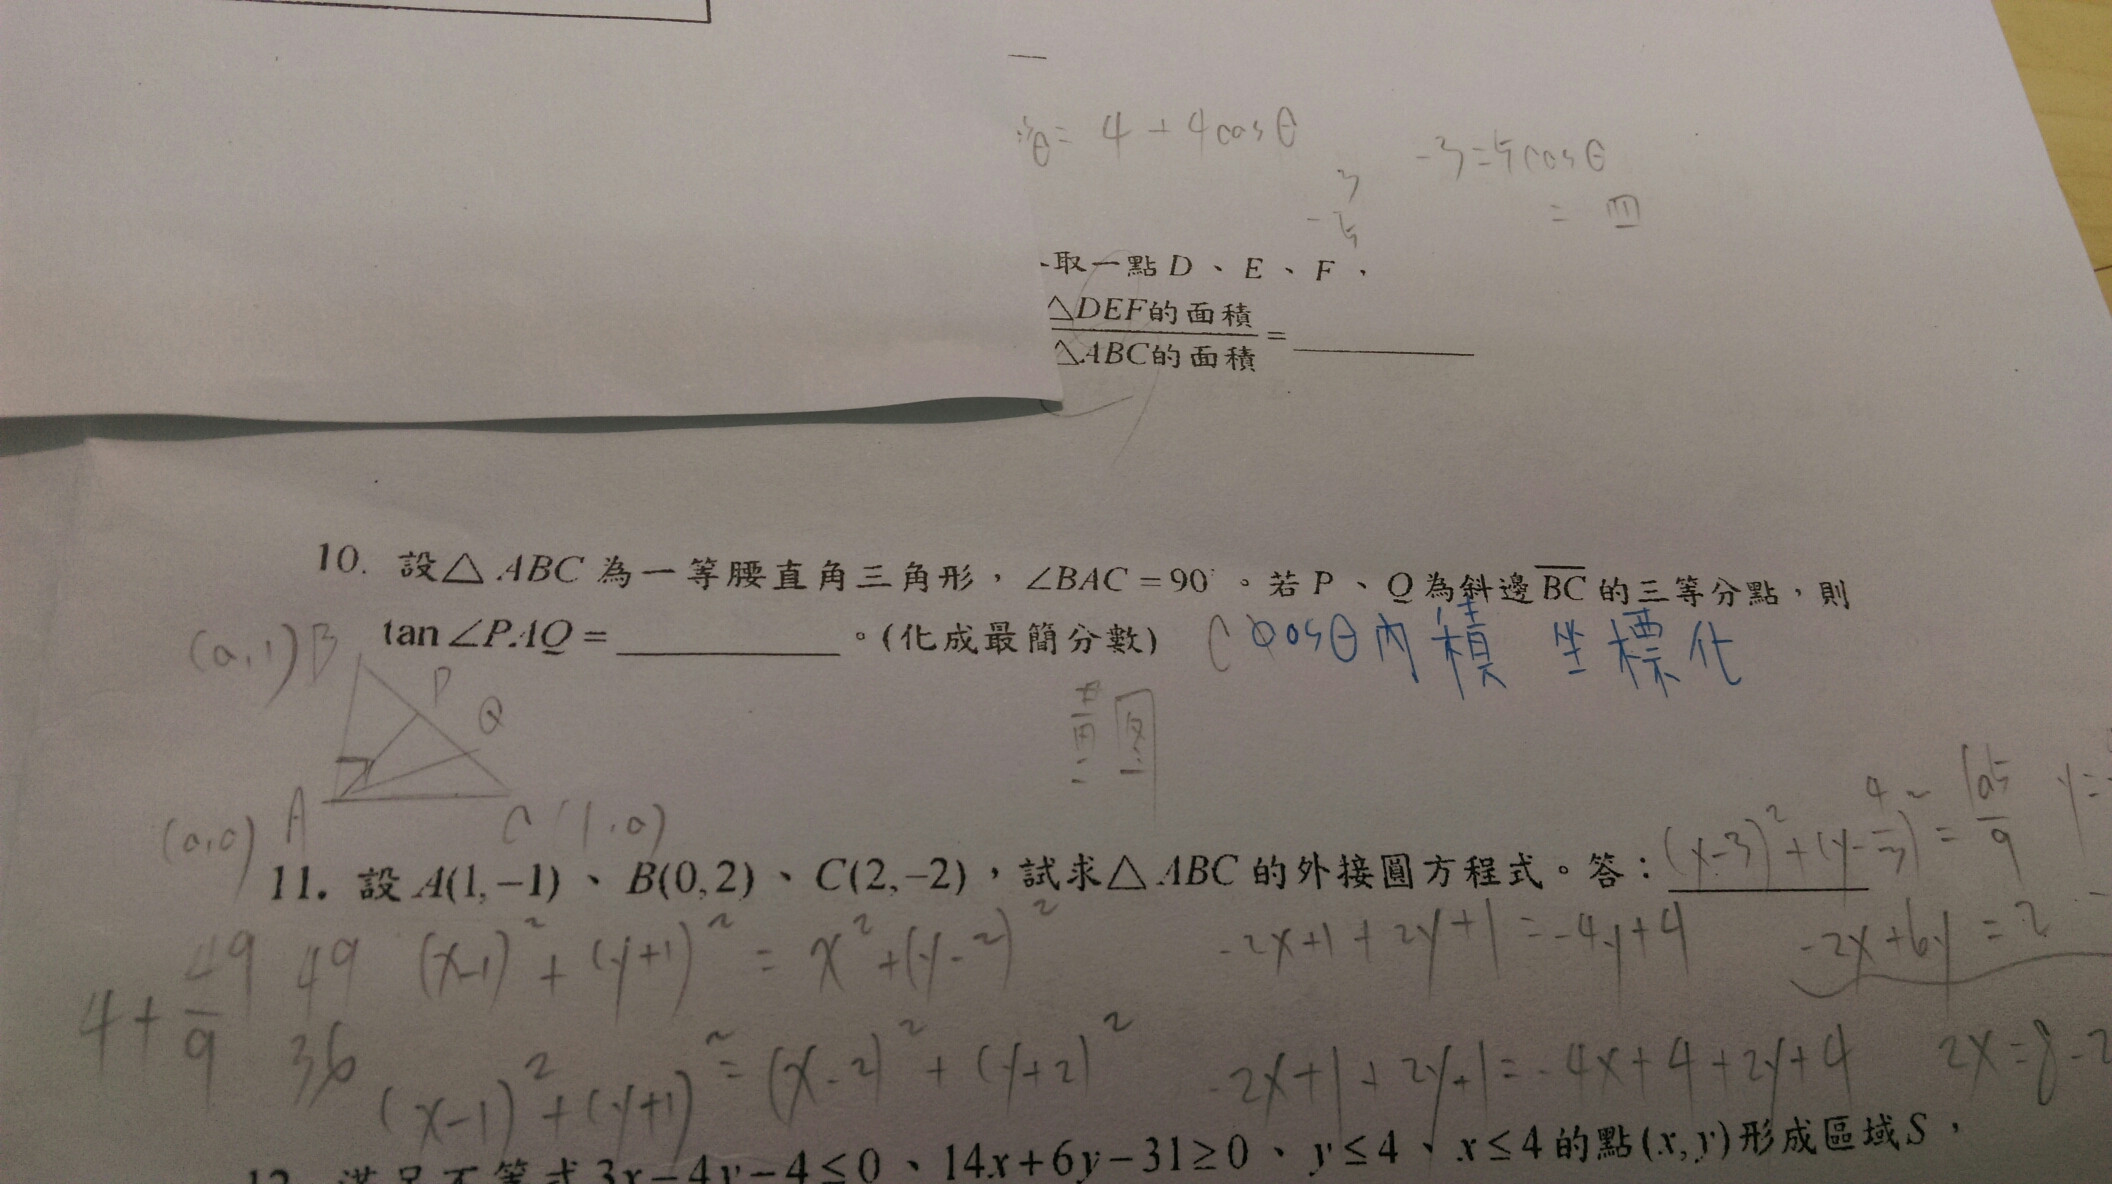 θ = 4 + 4cosθ
-3=5cosθ
取一點 D、E、F,
△DEF的面積
△ABC的面積
= ______
10. 設△ABC 為一等腰直角三角形，∠BAC = 90°。若 P、Q 為斜邊BC的三等分點，則
tan∠PAQ = ______。(化成最簡分數)
cosθ內積 坐標化
(0,1) B
P
Q
A
(0,0)
C (1,0)
11. 設 A(1,−1)、B(0,2)、C(2,−2)，試求△ABC 的外接圓方程式。答：
(x-1)² + (y+1)² = x² + (y-2)²
-2x+1+2y+1=-4y+4
-2x+6y=2
4+49/9
49
36
(x-1)²+(y+1)²=(x-2)²+(y+2)²
式 3x−4y−4≤0、14x+6y−31≥0、y≤4、x≤4的點(x,y)形成區域S，